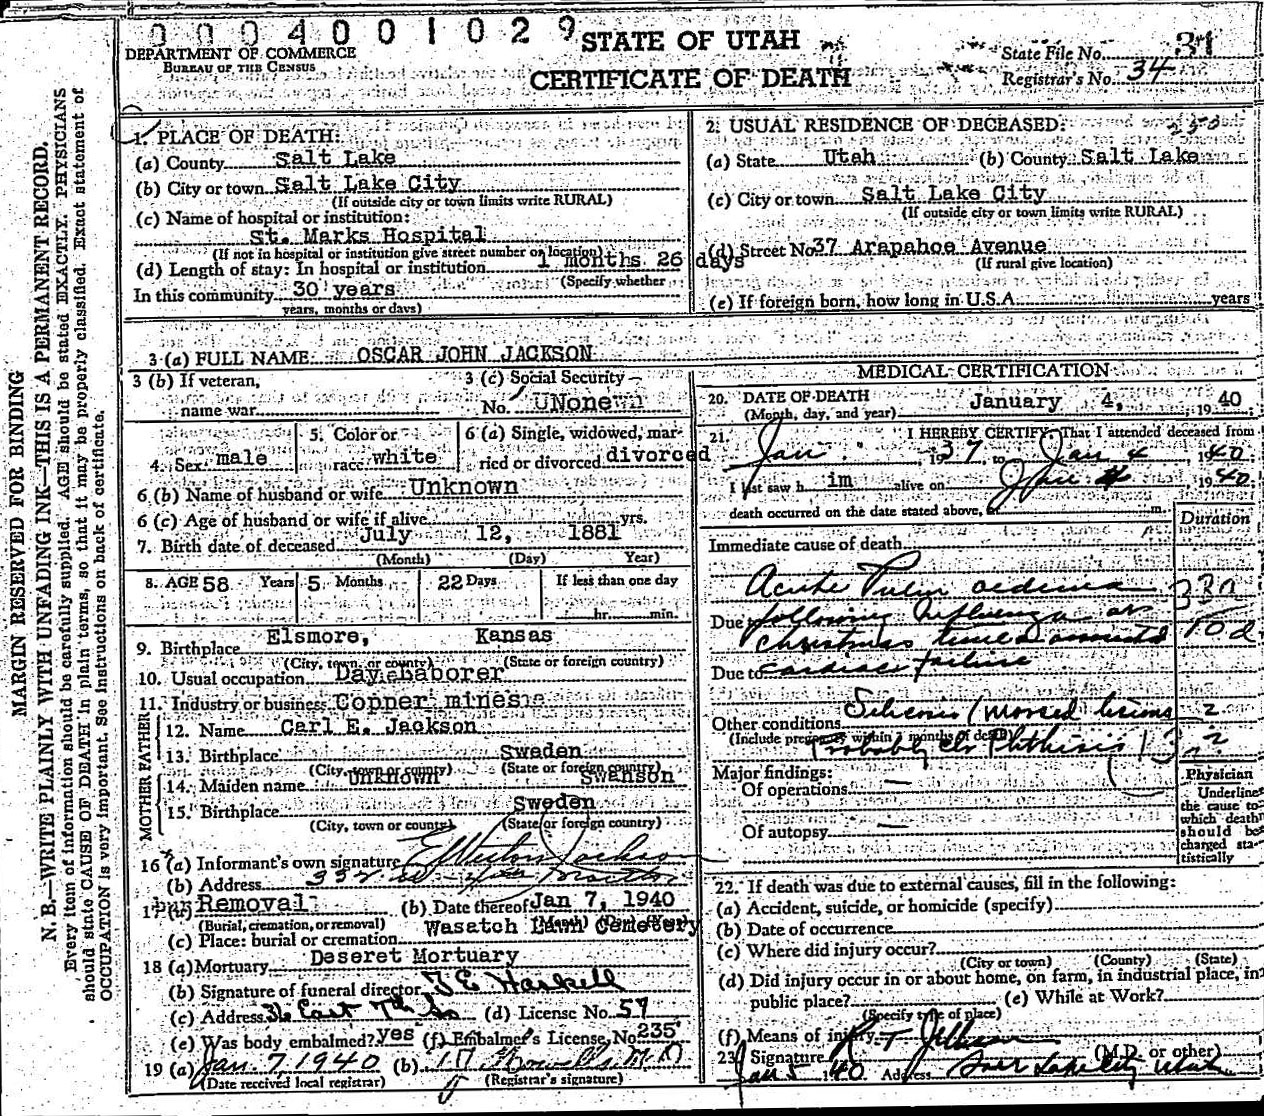 0004001029
STATE OF UTAH
DEPARTMENT OF COMMERCE
BUREAU OF THE CENSUS
CERTIFICATE OF DEATH
State File No. 31
Registrar's No. 34
MARGIN RESERVED FOR BINDING
N. B.—WRITE PLAINLY WITH UNFADING INK—THIS IS A PERMANENT RECORD.
Every item of information should be carefully supplied. AGE should be stated EXACTLY. PHYSICIANS
should state CAUSE OF DEATH in plain terms, so that it may be properly classified. Exact statement of
OCCUPATION is very important. See instructions on back of certificate.
1. PLACE OF DEATH:
(a) County Salt Lake
(b) City or town Salt Lake City
(If outside city or town limits write RURAL)
(c) Name of hospital or institution:
St. Marks Hospital
(If not in hospital or institution give street number or location)
(d) Length of stay: In hospital or institution 1 months 26 days
(Specify whether
In this community 30 years
years, months or days)
2. USUAL RESIDENCE OF DECEASED:
(a) State Utah (b) County Salt Lake
(c) City or town Salt Lake City
(If outside city or town limits write RURAL)
(d) Street No. 37 Arapahoe Avenue
(If rural give location)
(e) If foreign born, how long in U.S.A. years
3 (a) FULL NAME OSCAR JOHN JACKSON
3 (b) If veteran,
name war
3 (c) Social Security
No. UNone
4. Sex male
5. Color or
race white
6 (a) Single, widowed, mar-
ried or divorced divorced
6 (b) Name of husband or wife Unknown
6 (c) Age of husband or wife if alive yrs.
7. Birth date of deceased July 12, 1881
(Month) (Day) Year)
8. AGE 58 Years 5 Months 22 Days If less than one day
hr. min.
9. Birthplace Elsmore, Kansas
(City, town, or county) (State or foreign country)
10. Usual occupation Day Laborer
11. Industry or business Copper mines
FATHER
12. Name Carl E. Jackson
13. Birthplace Sweden
(City, town or county) (State or foreign country)
MOTHER
14. Maiden name Unknown Swanson
15. Birthplace Sweden
(City, town or county) (State or foreign country)
16 (a) Informant's own signature Jackson
(b) Address
17 (a) Removal (b) Date thereof Jan 7, 1940
(Burial, cremation, or removal) (Month) (Day) (Year)
(c) Place: burial or cremation Wasatch Lawn Cemetery
18 (a) Mortuary Deseret Mortuary
(b) Signature of funeral director T E Haskell
(c) Address 36 East 7th So (d) License No. 57
(e) Was body embalmed? yes (f) Embalmer's License No. 235
19 (a) Jan. 7, 1940 (b) M.D.
(Date received local registrar) (Registrar's signature)
MEDICAL CERTIFICATION
20. DATE OF DEATH
(Month, day, and year) January 4, 1940
21. I HEREBY CERTIFY, That I attended deceased from
Jan 1937, to Jan 4 1940.
I last saw h im alive on Jan 4 1940.
death occurred on the date stated above, at m.
Duration
Immediate cause of death
Acute Pulm oedema
Due to following influenza at 10 d
christmas time
Due to cardiac failure
Other conditions Silicosis
(Include pregnancy within 3 months of death)
Probably Phthisis ?
Major findings:
Of operations —
Of autopsy —
Physician
Underline
the cause to
which death
should be
charged sta-
tistically
22. If death was due to external causes, fill in the following:
(a) Accident, suicide, or homicide (specify)
(b) Date of occurrence
(c) Where did injury occur?
(City or town) (County) (State)
(d) Did injury occur in or about home, on farm, in industrial place, in
public place? (e) While at Work?
(Specify type of place)
(f) Means of injury
23. Signature (M.D. or other)
Jan 5 1940 Address Salt Lake City Utah